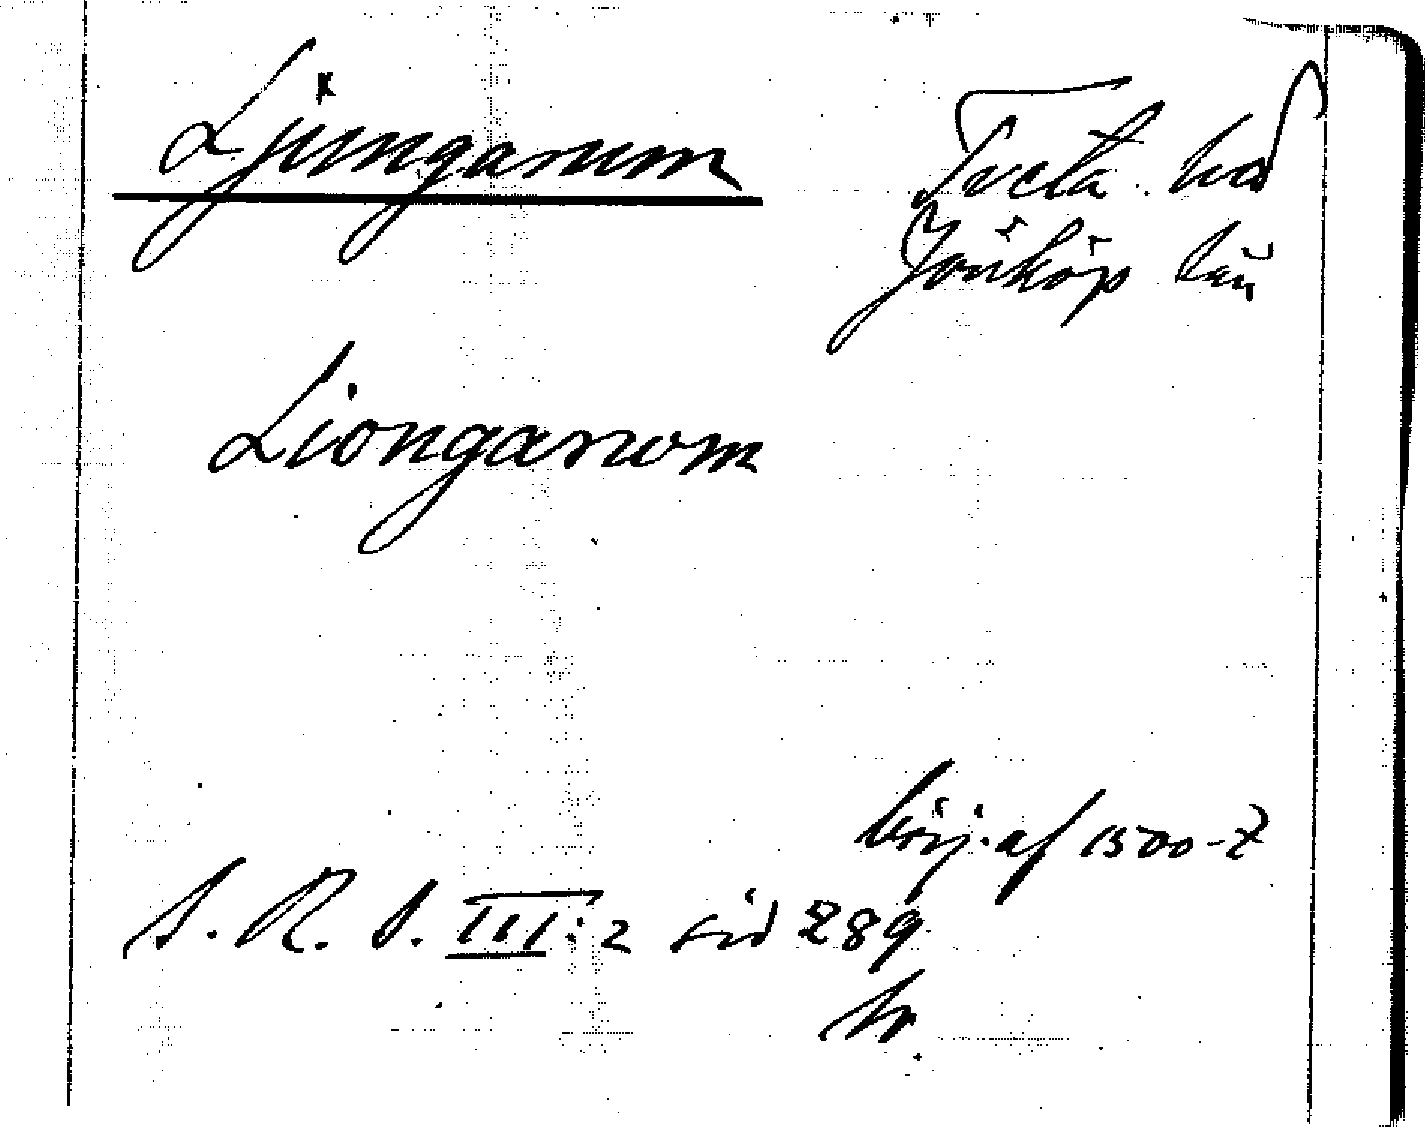 Ljungarum
Tveta had
Jönköp län
Liongarum
börj. af 1500-t
S. R. S. III:2 sid 289
tr.